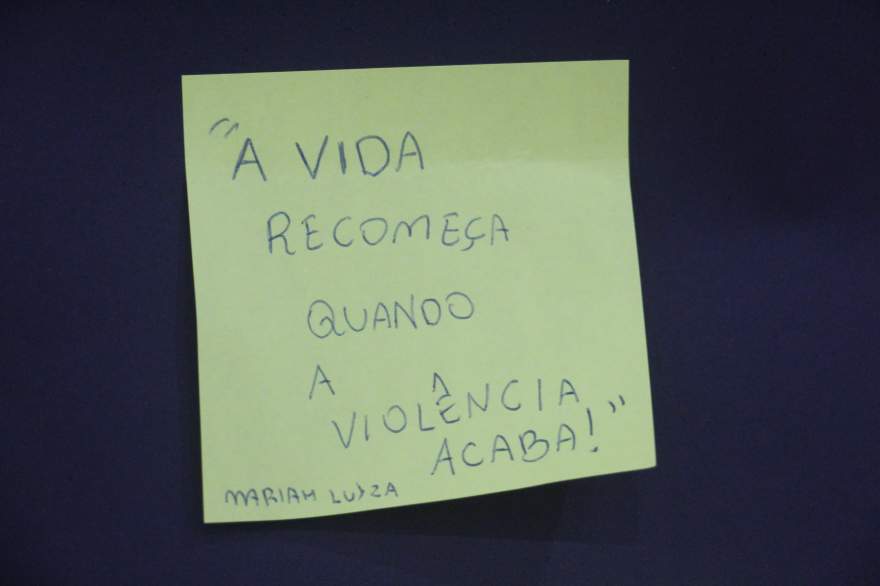 "A VIDA
RECOMEÇA
QUANDO
A
VIOLÊNCIA
ACABA!"
MARIAH LUYZA